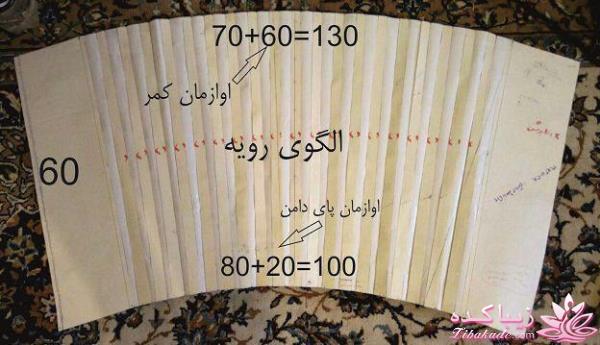 70+60=130
اوازمان کمر
الگوی رویه
60
اوازمان پای دامن
80+20=100
زیباکده
Zibakade.com